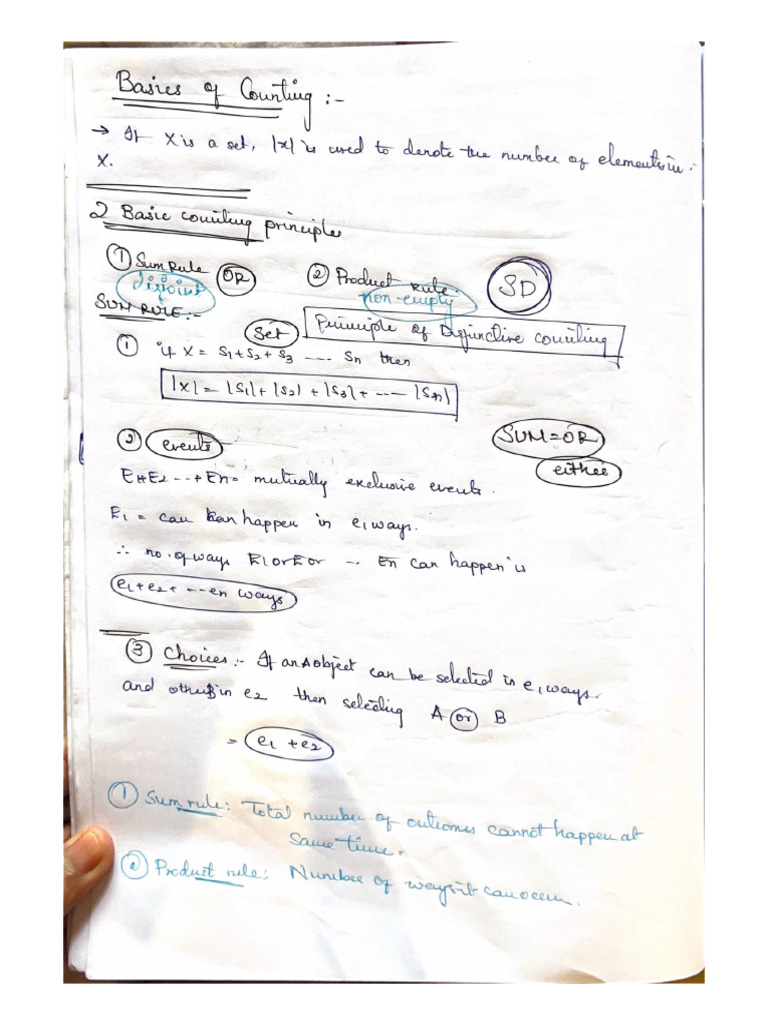 Basics of Counting :-
→ If X is a set, |x| is used to denote the number of elements in
X.
2 Basic counting principles
① Sum Rule OR ② Product rule. SD
disjoint non-empty
SUM RULE :-
Set Principle of Disjunctive counting
① if X = S1+S2+S3 .... Sn then
|X| = |S1| + |S2| + |S3| + --- |Sn|
② events SUM=OR
either
E1+E2 ..+ En = mutually exclusive events.
E1 = can happen in e1 ways.
∴ no. of ways E1 or E or .. En can happen is
e1+e2+ ---en ways
③ Choices :- If an A object can be selected in e1 ways
and other B in e2 then selecting A or B
= e1 + e2
① Sum rule: Total number of outcomes cannot happen at
same time.
② Product rule: Number of ways it can occur.